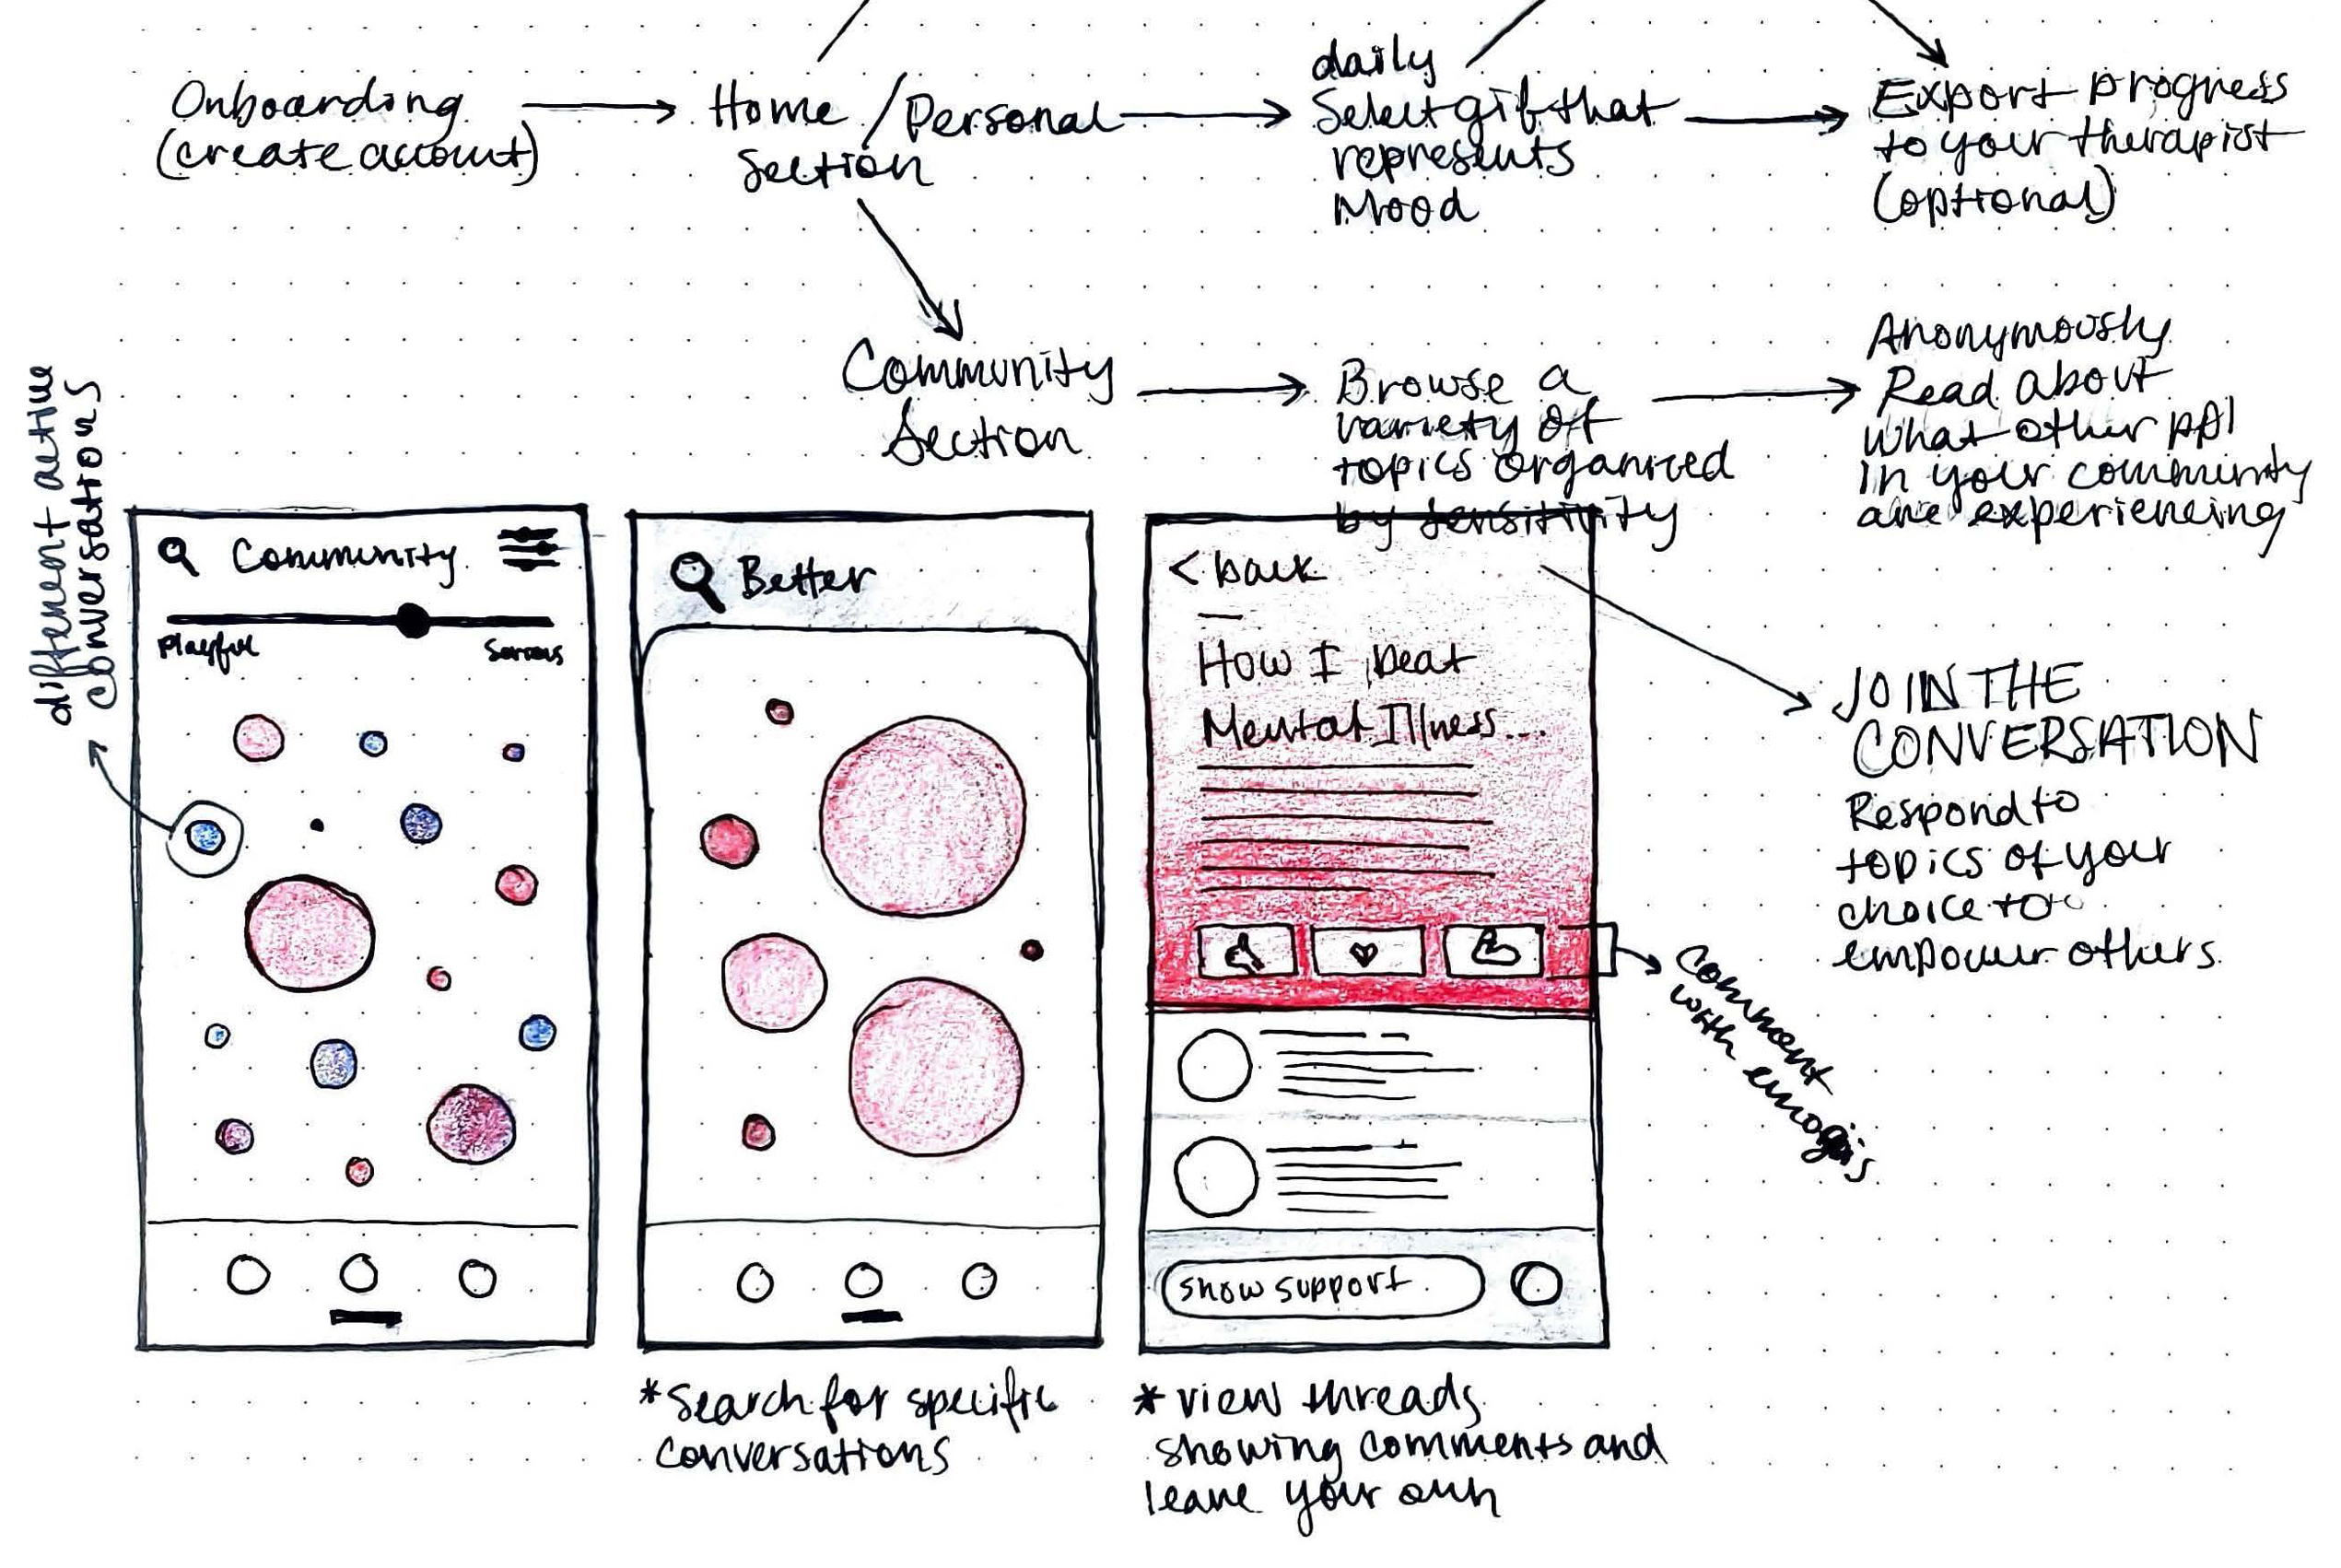 Onboarding
(create account)
Home / Personal
Section
daily
Select gif that
represents
Mood
Export progress
to your therapist
(optional)
Community
Section
Browse a
variety of
topics organized
by sensitivity
Anonymously
Read about
what other ppl
in your community
are experiencing
JOIN THE
CONVERSATION
Respond to
topics of your
choice to
empower others
different active
conversations
Community
Playful
Serious
Better
< back
How I beat
Mental Illness...
show support
comment
with emojis
*Search for specific
conversations
* view threads
showing comments and
leave your own